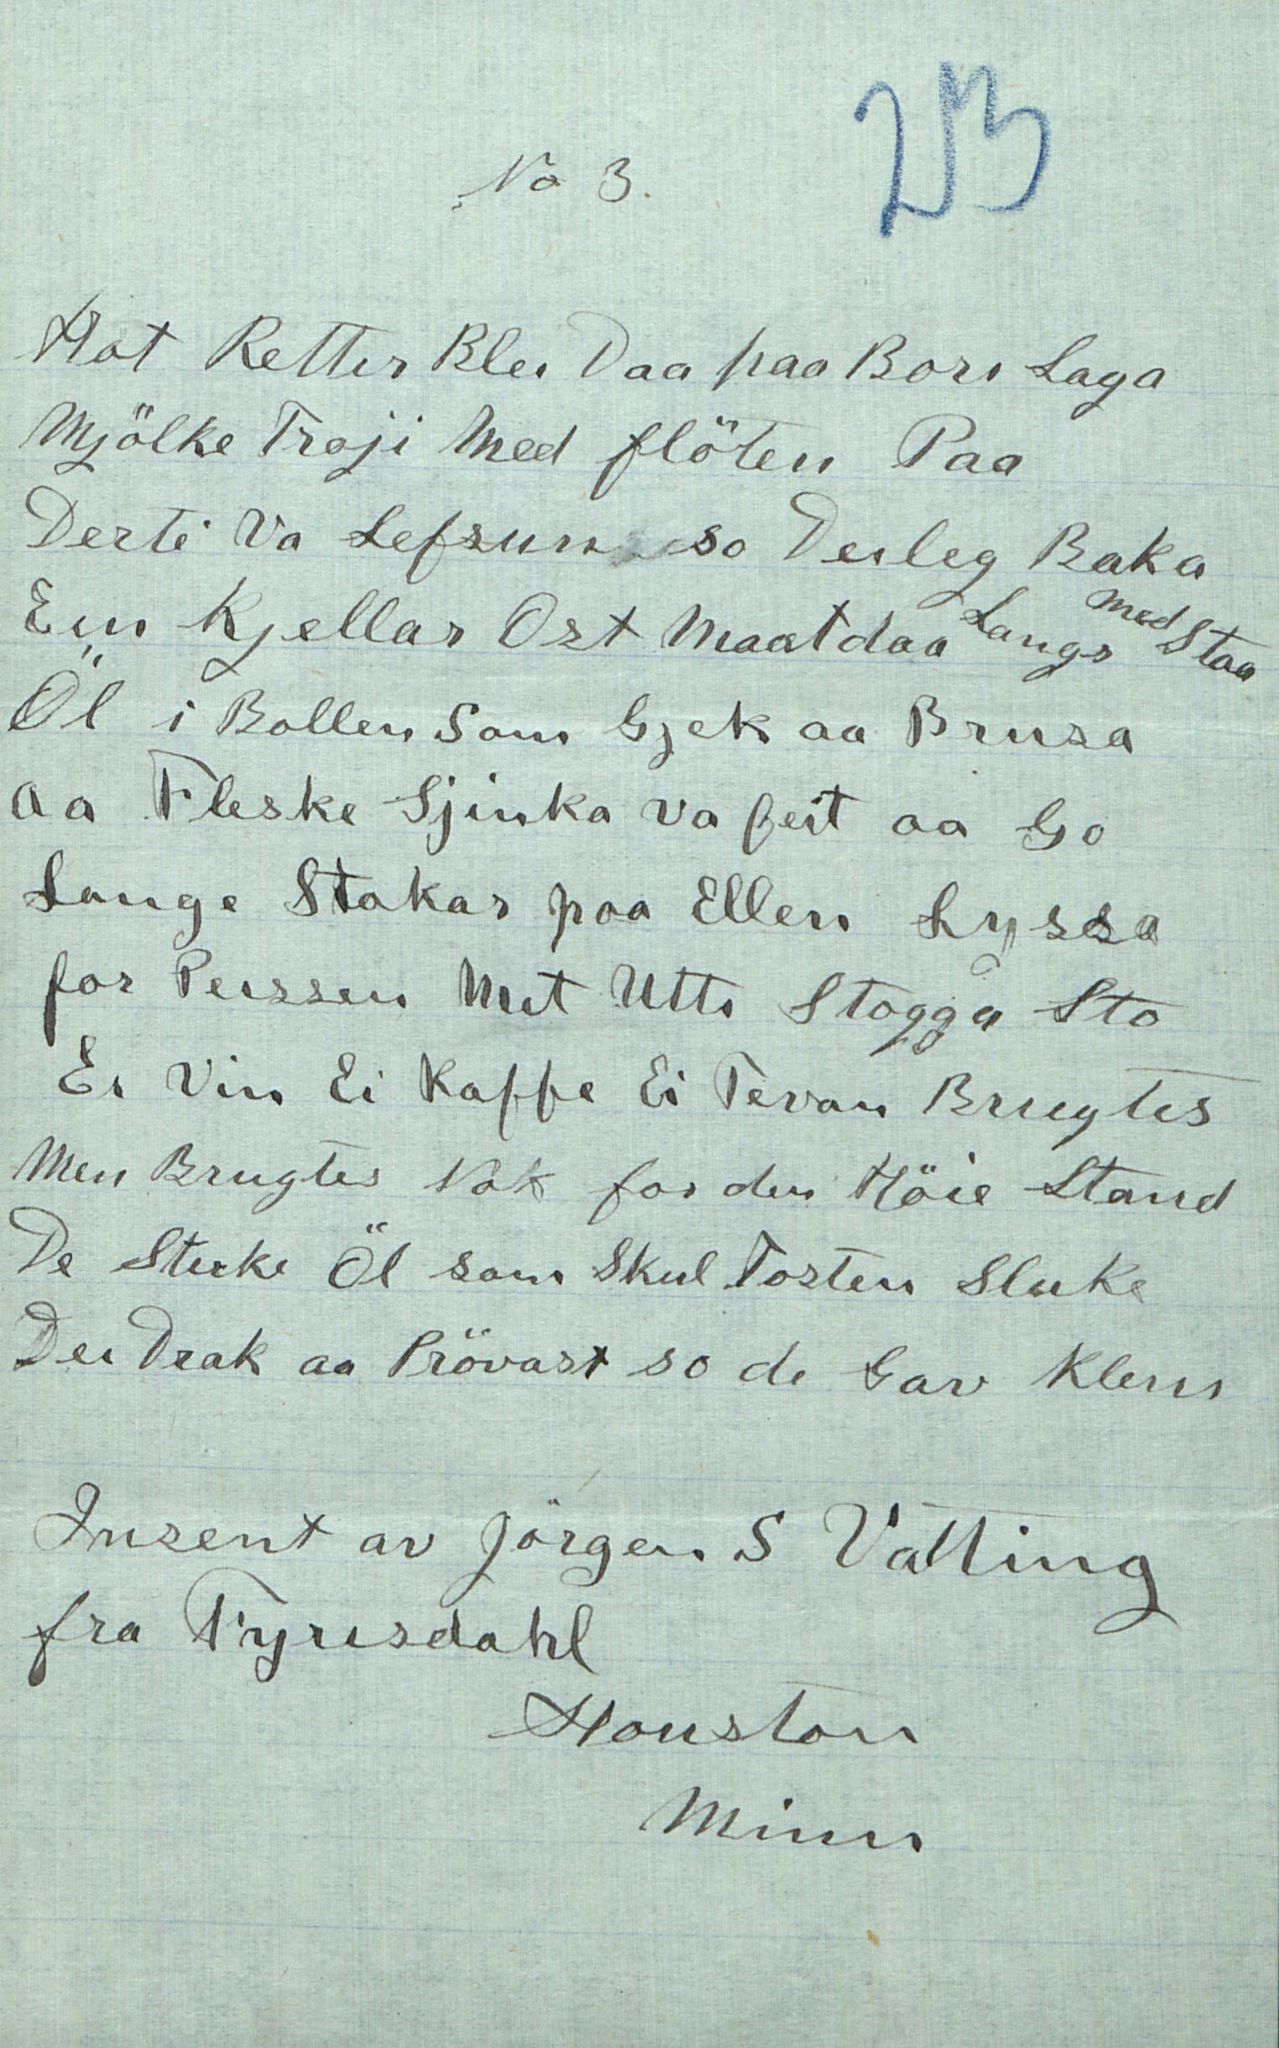 213
No 3.
Hot Retter Blei Daa paa Bore Laga
Mjölke Troji Med flöten Paa
Derti Va Lefsunn so Deileg Baka
Ein Kjellar Ost Maatdaa Langs med Staa
Öl i Bollen Som Gjek aa Brusa
aa Fleske Sjinka va feit aa Go
Lange Stakar paa Ellen Lyssa
for Peissen Mit Utti Stogga Sto
Ei Vin Ei Kaffe Ei Tevan Brugtes
Men Brugtes Nok for den Höie Stand
De Sterke Öl som Skul Tosten Sluke
Dei Drak aa Prövast so de Gav Klem
Insent av Jörgen S Vatting
fra Tyrisdahl
Houston
Minn